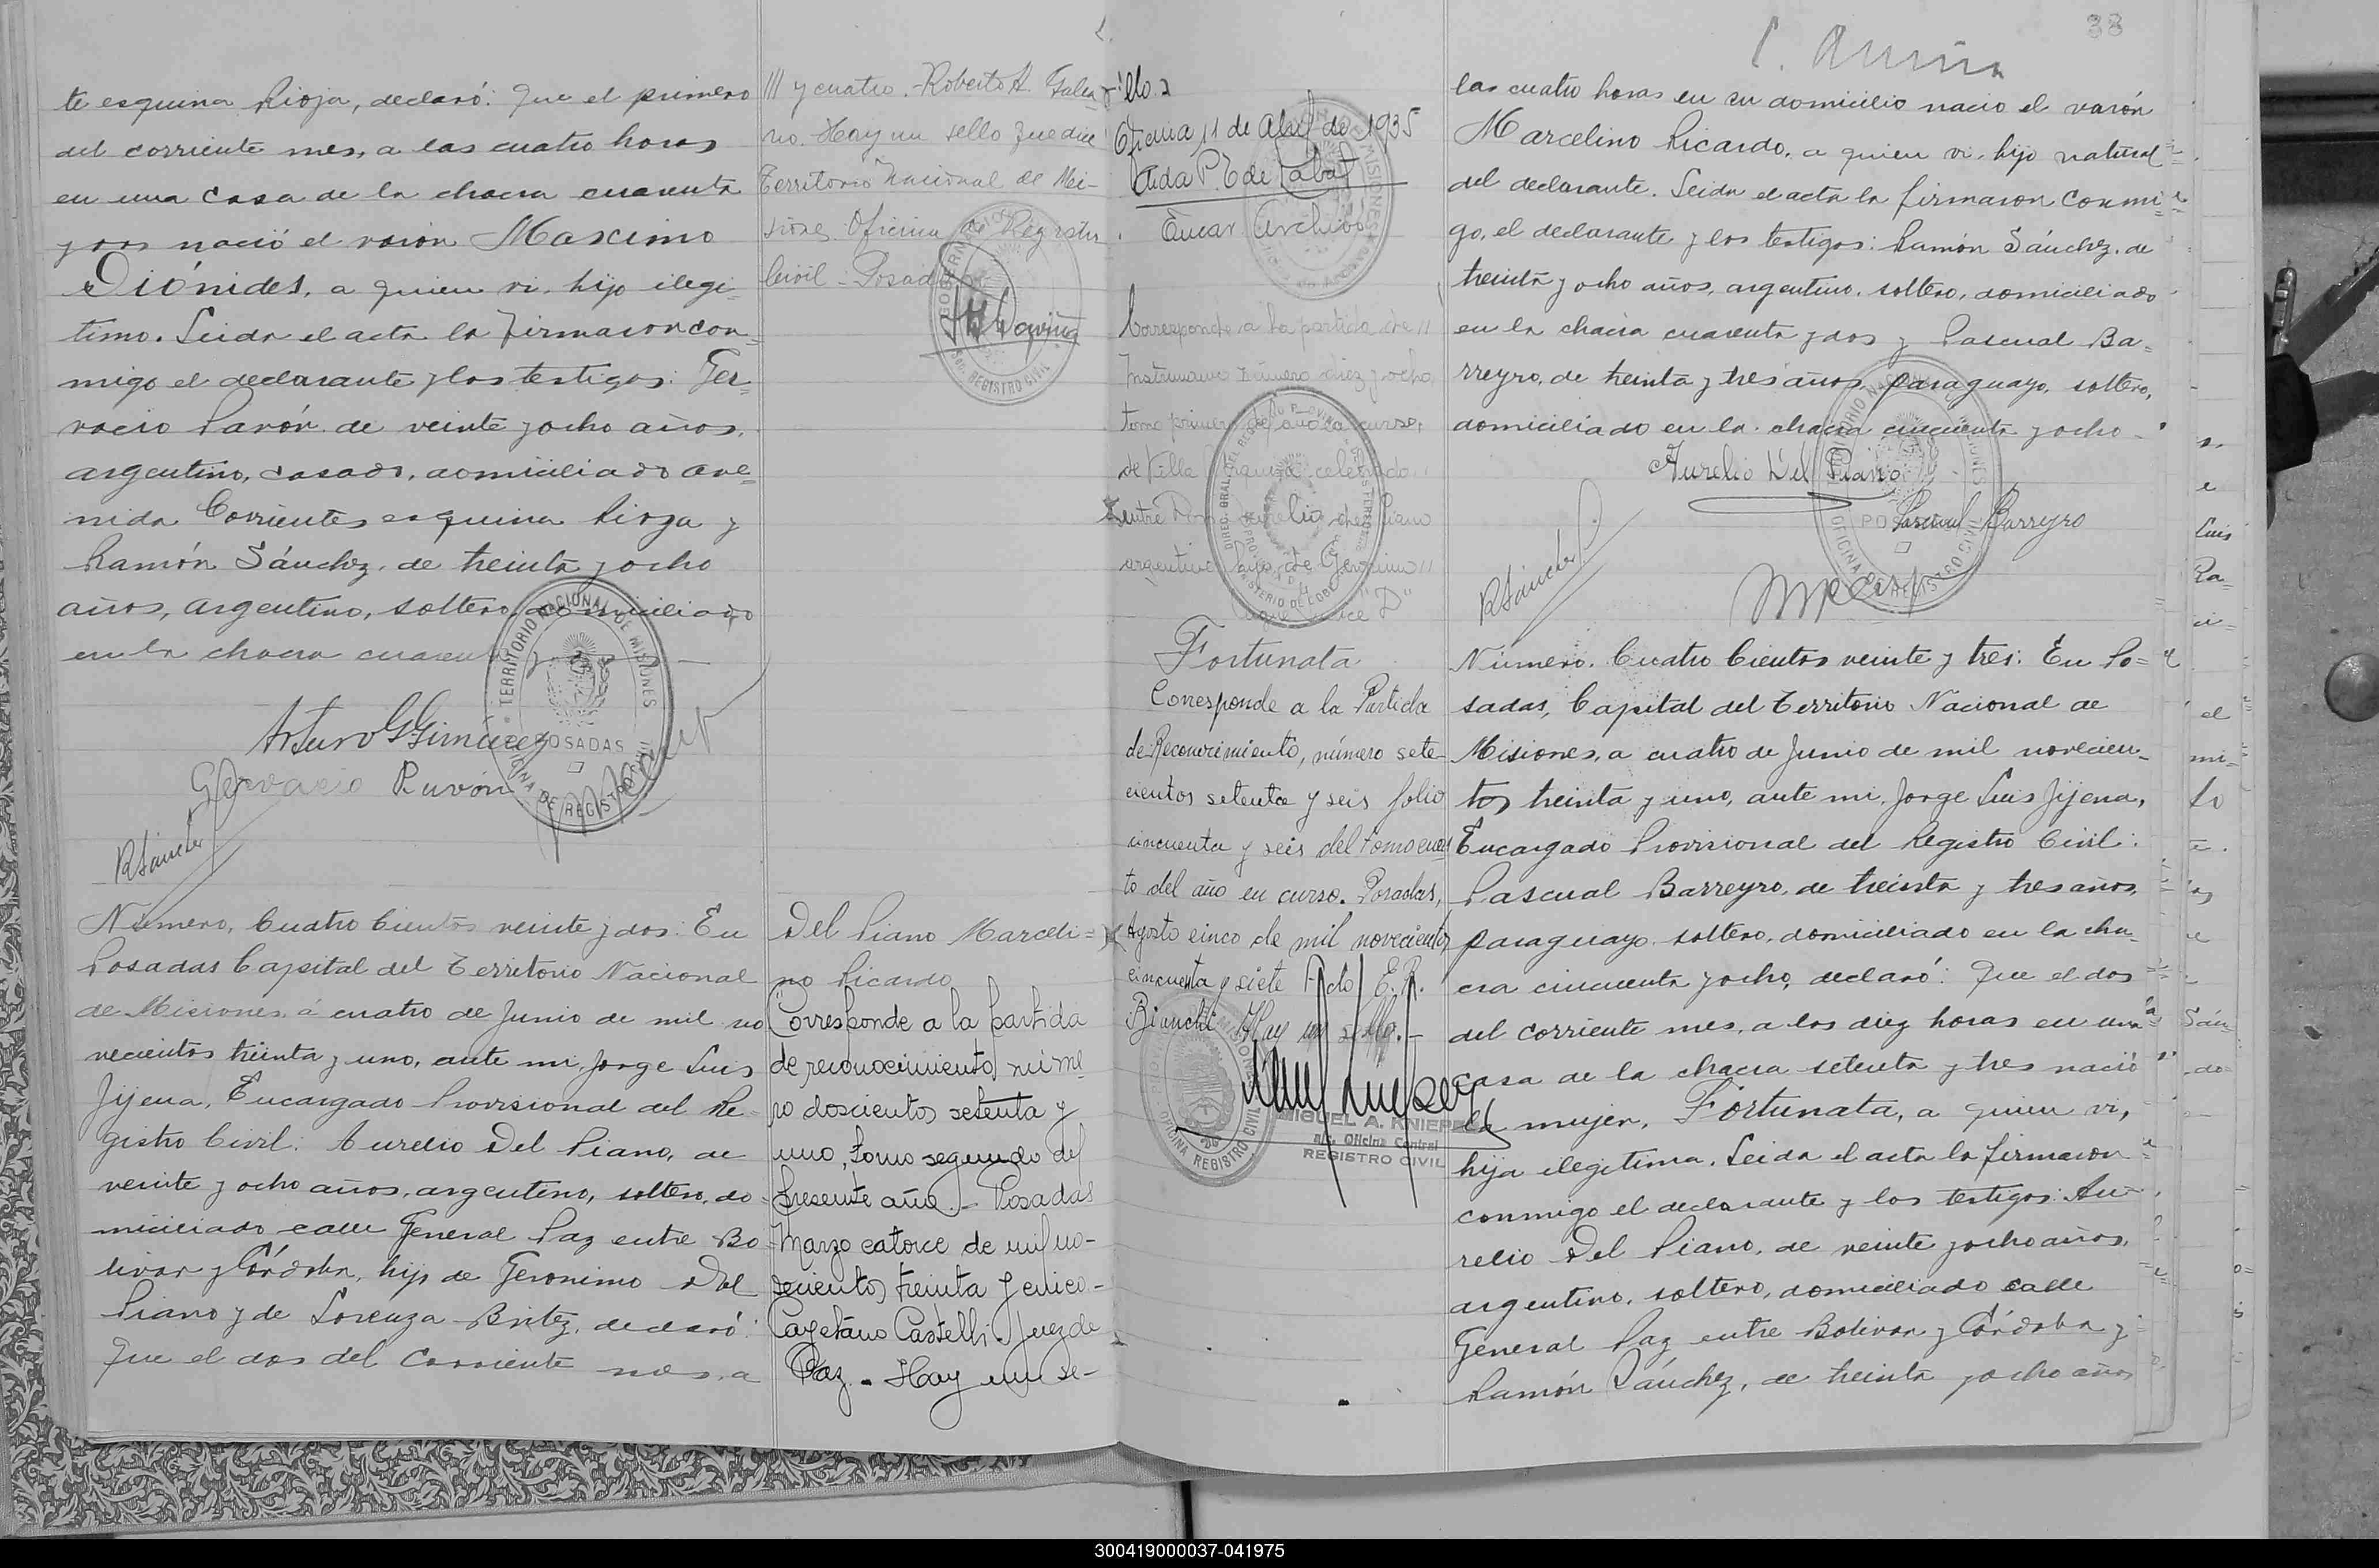 te esquina Rioja, declaró: Que el primero
del corriente mes, a las cuatro horas
en una casa de la chacra cuarenta
y dos nació el varón Maximo
Diónides, a quien vi, hijo ilegi-
timo. Leida el acta la firmaron con-
migo el declarante y los testigos: Ger-
vacio Pavón de veinte y ocho años,
argentino, casado, domiciliado ave-
nida Corrientes esquina Rioja y
Ramón Sánchez, de treinta y ocho
años, argentino, soltero, domiciliado
en la chacra cuarenta y dos
Arturo G Gimenez
Gervacio Pavón
R Sanchez
TERRITORIO NACIONAL DE MISIONES
POSADAS
OFICINA DE REGISTRO CIVIL
Número, Cuatro Cientos veinte y dos: En
Posadas Capital del Territorio Nacional
de Misiones, á cuatro de Junio de mil no
vecientos treinta y uno, ante mi, Jorge Luis
Jijena, Encargado Provisional del Re-
gistro Civil: Aurelio Del Piano, de
veinte y ocho años, argentino, soltero, do-
miciliado calle General Paz entre Bo
livar y Córdoba, hijo de Geronimo Del
Piano y de Lorenza Britez, declaró:
Que el dos del corriente mes, a
/// y cuatro.- Roberto A. Galea
no. Hay un sello que dice
Territorio Nacional de Mi-
siones Oficina de Registro
Civil - Posadas
REGISTRO CIVIL
Del Piano Marceli-
no Ricardo
Corresponde a la partida
de reconocimiento núme
ro doscientos setenta y
uno, tomo segundo del
presente año.- Posadas
Marzo catorce de mil no-
vecientos treinta y cinco-
Cayetano Castelli. Juez de
Paz.- Hay un se-
llo.
Oficina 11 de Abril de 1935
Aida P. de Labat
Encar Archivo
Corresponde a la partida de //
número diez y ocho,
tomo primero del año en curso,
de Villa celebrado
entre Don Aurelio del Piano
argentino hijo de Geronimo //
"D"
Fortunata
Corresponde a la Partida
de Reconocimiento, número sete-
cientos setenta y seis folio
cincuenta y seis del tomo cuar
to del año en curso. Posadas,
Agosto cinco de mil novecientos
cincuenta y siete Fdo E. R.
Bianchi Hay un sello.-
MIGUEL A. KNIEPE
Oficina Central
REGISTRO CIVIL
OFICINA REGISTRO CIVIL
38
las cuatro horas en su domicilio nacio el varón
Marcelino Ricardo, a quien vi, hijo natural
del declarante. Leida el acta la firmaron conmi-
go, el declarante y los testigos: Ramón Sánchez, de
treinta y ocho años, argentino, soltero, domiciliado
en la chacra cuarenta y dos y Pascual Ba-
rreyro, de treinta y tres años, paraguayo, soltero,
domiciliado en la chacra cincuenta y ocho -
Aurelio Del Piano
Pascual Barreyro
R Sánchez
Número. Cuatro Cientos veinte y tres: En Po-
sadas, Capital del Territorio Nacional de
Misiones, a cuatro de Junio de mil novecien-
tos treinta y uno, ante mi, Jorge Luis Jijena,
Encargado Provisional del Registro Civil:
Pascual Barreyro, de treinta y tres años,
paraguayo, soltero, domiciliado en la cha-
cra cincuenta y ocho, declaró: Que el dos
del corriente mes, a los diez horas en una
casa de la chacra setenta y tres nació
la mujer, Fortunata, a quien vi,
hija ilegitima. Leida el acta la firmaron
conmigo el declarante y los testigos: Au-
relio Del Piano, de veinte y ocho años,
argentino, soltero, domiciliado calle
General Paz entre Bolivar y Córdoba y
Ramón Sánchez, de treinta y ocho años
300419000037-041975